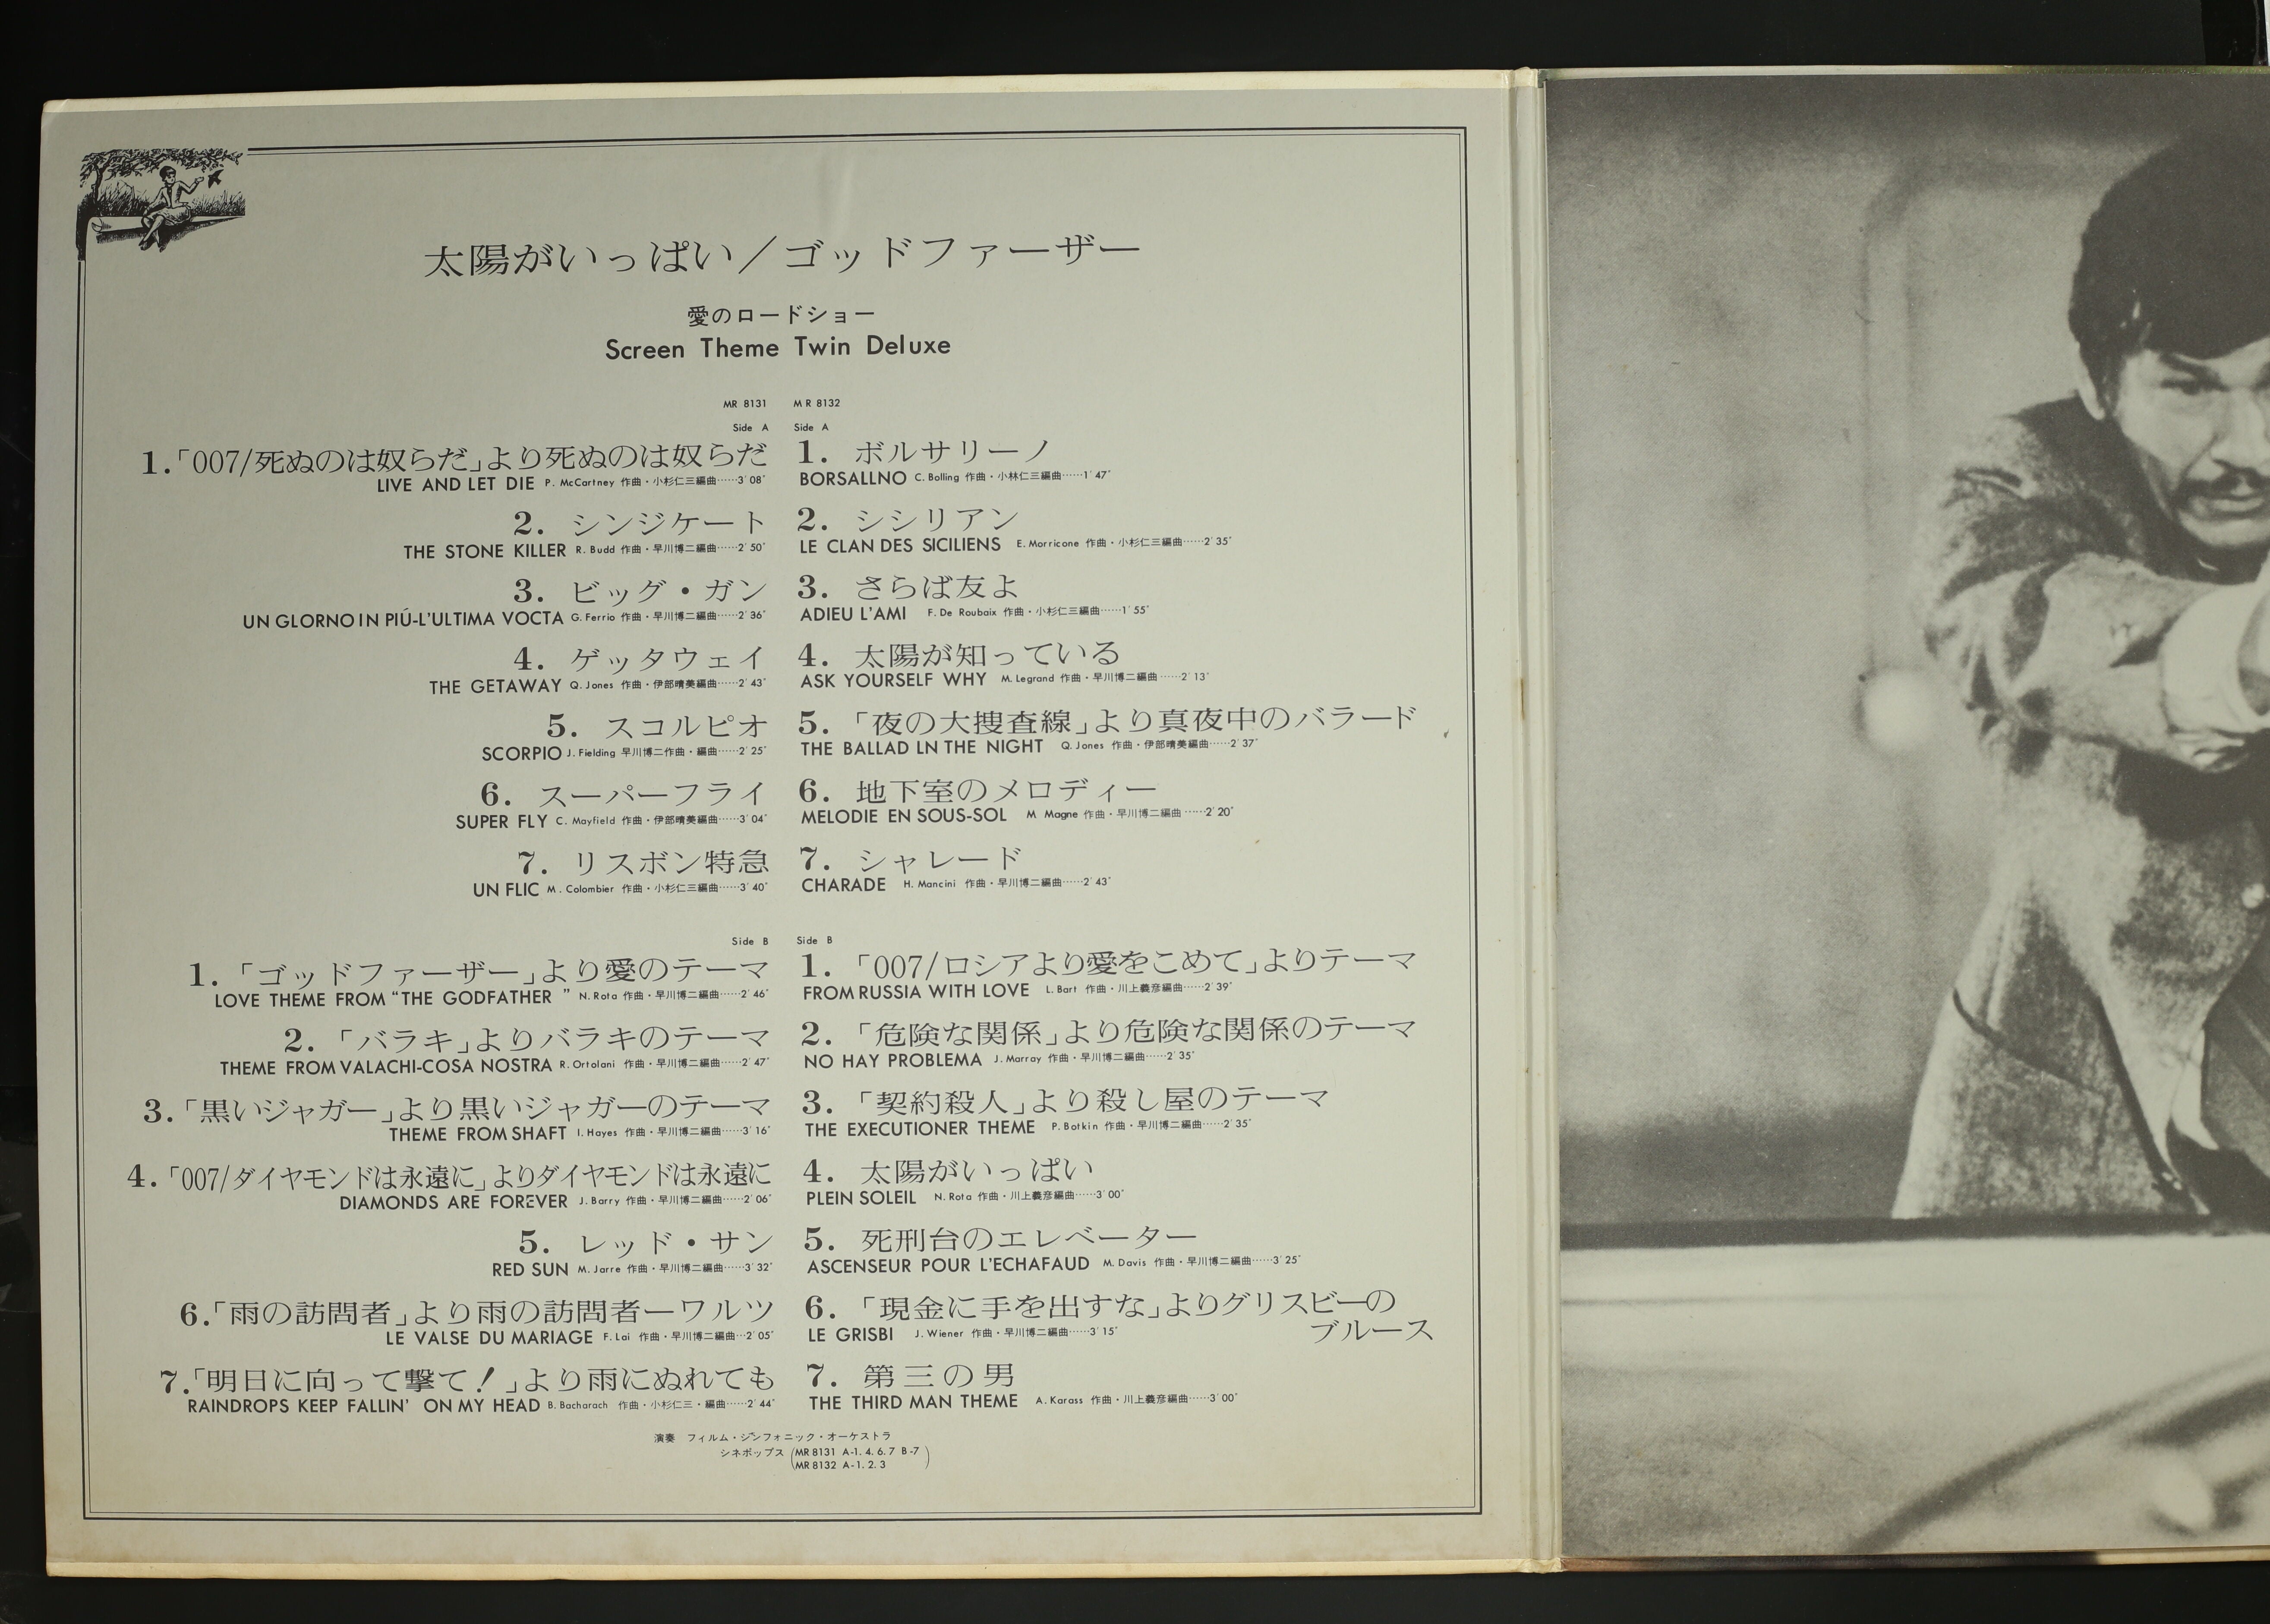 太陽がいっぱい／ゴッドファーザー
愛のロードショー
Screen Theme Twin Deluxe
MR 8131
Side A
1.「007/死ぬのは奴らだ」より死ぬのは奴らだ
LIVE AND LET DIE P. McCartney 作曲・小杉仁三編曲……3′08″
2. シンジケート
THE STONE KILLER R. Budd 作曲・早川博二編曲……2′50″
3. ビッグ・ガン
UN GLORNO IN PIÚ-L'ULTIMA VOCTA G. Ferrio 作曲・早川博二編曲……2′36″
4. ゲッタウェイ
THE GETAWAY Q. Jones 作曲・伊部晴美編曲……2′43″
5. スコルピオ
SCORPIO J. Fielding 早川博二作曲・編曲……2′25″
6. スーパーフライ
SUPER FLY C. Mayfield 作曲・伊部晴美編曲……3′04″
7. リスボン特急
UN FLIC M. Colombier 作曲・小杉仁三編曲……3′40″
Side B
1. 「ゴッドファーザー」より愛のテーマ
LOVE THEME FROM “THE GODFATHER ” N. Rota 作曲・早川博二編曲……2′46″
2. 「バラキ」よりバラキのテーマ
THEME FROM VALACHI-COSA NOSTRA R. Ortolani 作曲・早川博二編曲……2′47″
3.「黒いジャガー」より黒いジャガーのテーマ
THEME FROM SHAFT I. Hayes 作曲・早川博二編曲……3′16″
4.「007/ダイヤモンドは永遠に」よりダイヤモンドは永遠に
DIAMONDS ARE FOREVER J. Barry 作曲・早川博二編曲……2′06″
5. レッド・サン
RED SUN M. Jarre 作曲・早川博二編曲……3′32″
6.「雨の訪問者」より雨の訪問者ーワルツ
LE VALSE DU MARIAGE F. Lai 作曲・早川博二編曲…2′05″
7.「明日に向って撃て！」より雨にぬれても
RAINDROPS KEEP FALLIN' ON MY HEAD B. Bacharach 作曲・小杉仁三・編曲……2′44″
MR 8132
Side A
1. ボルサリーノ
BORSALLNO C. Bolling 作曲・小林仁三編曲……1′47″
2. シシリアン
LE CLAN DES SICILIENS E. Morricone 作曲・小杉仁三編曲……2′35″
3. さらば友よ
ADIEU L'AMI F. De Roubaix 作曲・小杉仁三編曲……1′55″
4. 太陽が知っている
ASK YOURSELF WHY M. Legrand 作曲・早川博二編曲……2′13″
5. 「夜の大捜査線」より真夜中のバラード
THE BALLAD LN THE NIGHT Q. Jones 作曲・伊部晴美編曲……2′37″
6. 地下室のメロディー
MELODIE EN SOUS-SOL M Magne 作曲・早川博二編曲……2′20″
7. シャレード
CHARADE H. Mancini 作曲・早川博二編曲……2′43″
Side B
1. 「007/ロシアより愛をこめて」よりテーマ
FROM RUSSIA WITH LOVE L. Bart 作曲・川上義彦編曲……2′39″
2. 「危険な関係」より危険な関係のテーマ
NO HAY PROBLEMA J. Marray 作曲・早川博二編曲……2′35″
3. 「契約殺人」より殺し屋のテーマ
THE EXECUTIONER THEME P. Botkin 作曲・早川博二編曲……2′35″
4. 太陽がいっぱい
PLEIN SOLEIL N. Rota 作曲・川上義彦編曲……3′00″
5. 死刑台のエレベーター
ASCENSEUR POUR L'ECHAFAUD M. Davis 作曲・早川博二編曲……3′25″
6. 「現金に手を出すな」よりグリスビーの
ブルース
LE GRISBI J. Wiener 作曲・早川博二編曲……3′15″
7. 第三の男
THE THIRD MAN THEME A. Karass 作曲・川上義彦編曲……3′00″
演奏 フィルム・シンフォニック・オーケストラ
シネポップス (MR 8131 A-1. 4. 6. 7 B-7
MR 8132 A-1. 2. 3)